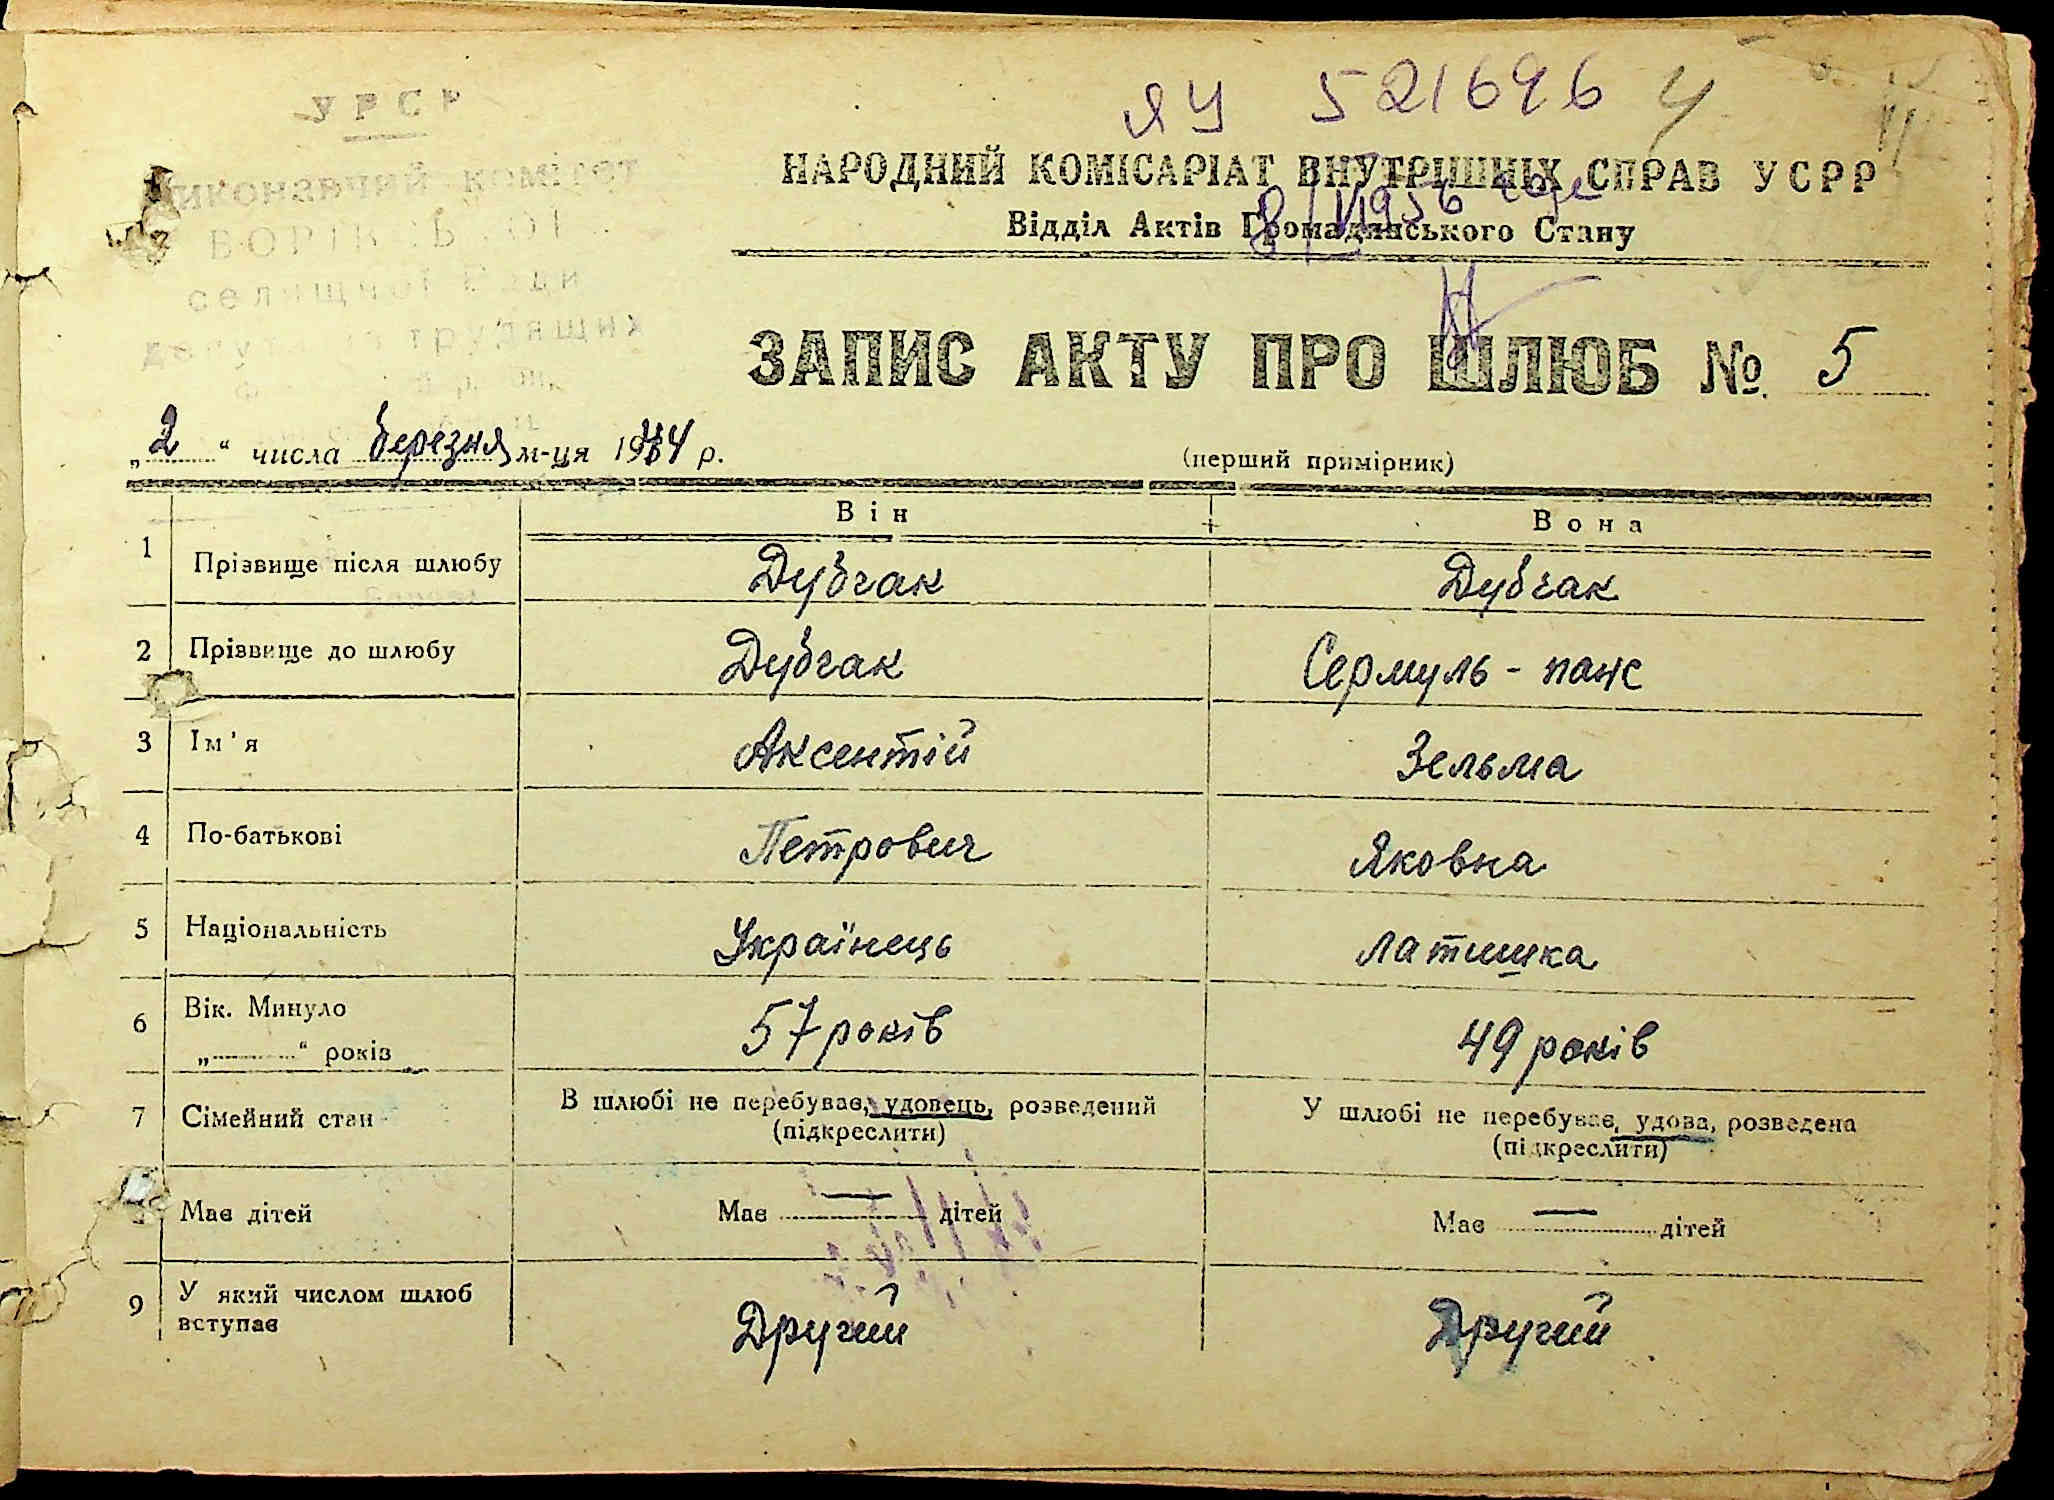 У Р С Р
Виконавчий комітет
селищної Ради
депутатів трудящих
ЯУ 521696 4
НАРОДНИЙ КОМІСАРІАТ ВНУТРІШНІХ СПРАВ УСРР
Відділ Актів Громадянського Стану
ЗАПИС АКТУ ПРО ШЛЮБ № 5
„2“ числа березня м-ця 1944 р. (перший примірник)
Він Вона
1 Прізвище після шлюбу Дубчак Дубчак
2 Прізвище до шлюбу Дубчак Сермуль - панс
3 Ім'я Аксентій Зельма
4 По-батькові Петрович Яковна
5 Національність Українець Латишка
6 Вік. Минуло
„ “ років 57 років 49 років
7 Сімейний стан В шлюбі не перебуває, удовець, розведений У шлюбі не перебуває, удова, розведена
(підкреслити) (підкреслити)
Має дітей Має — дітей Має — дітей
9 У який числом шлюб
вступає Другий Другий